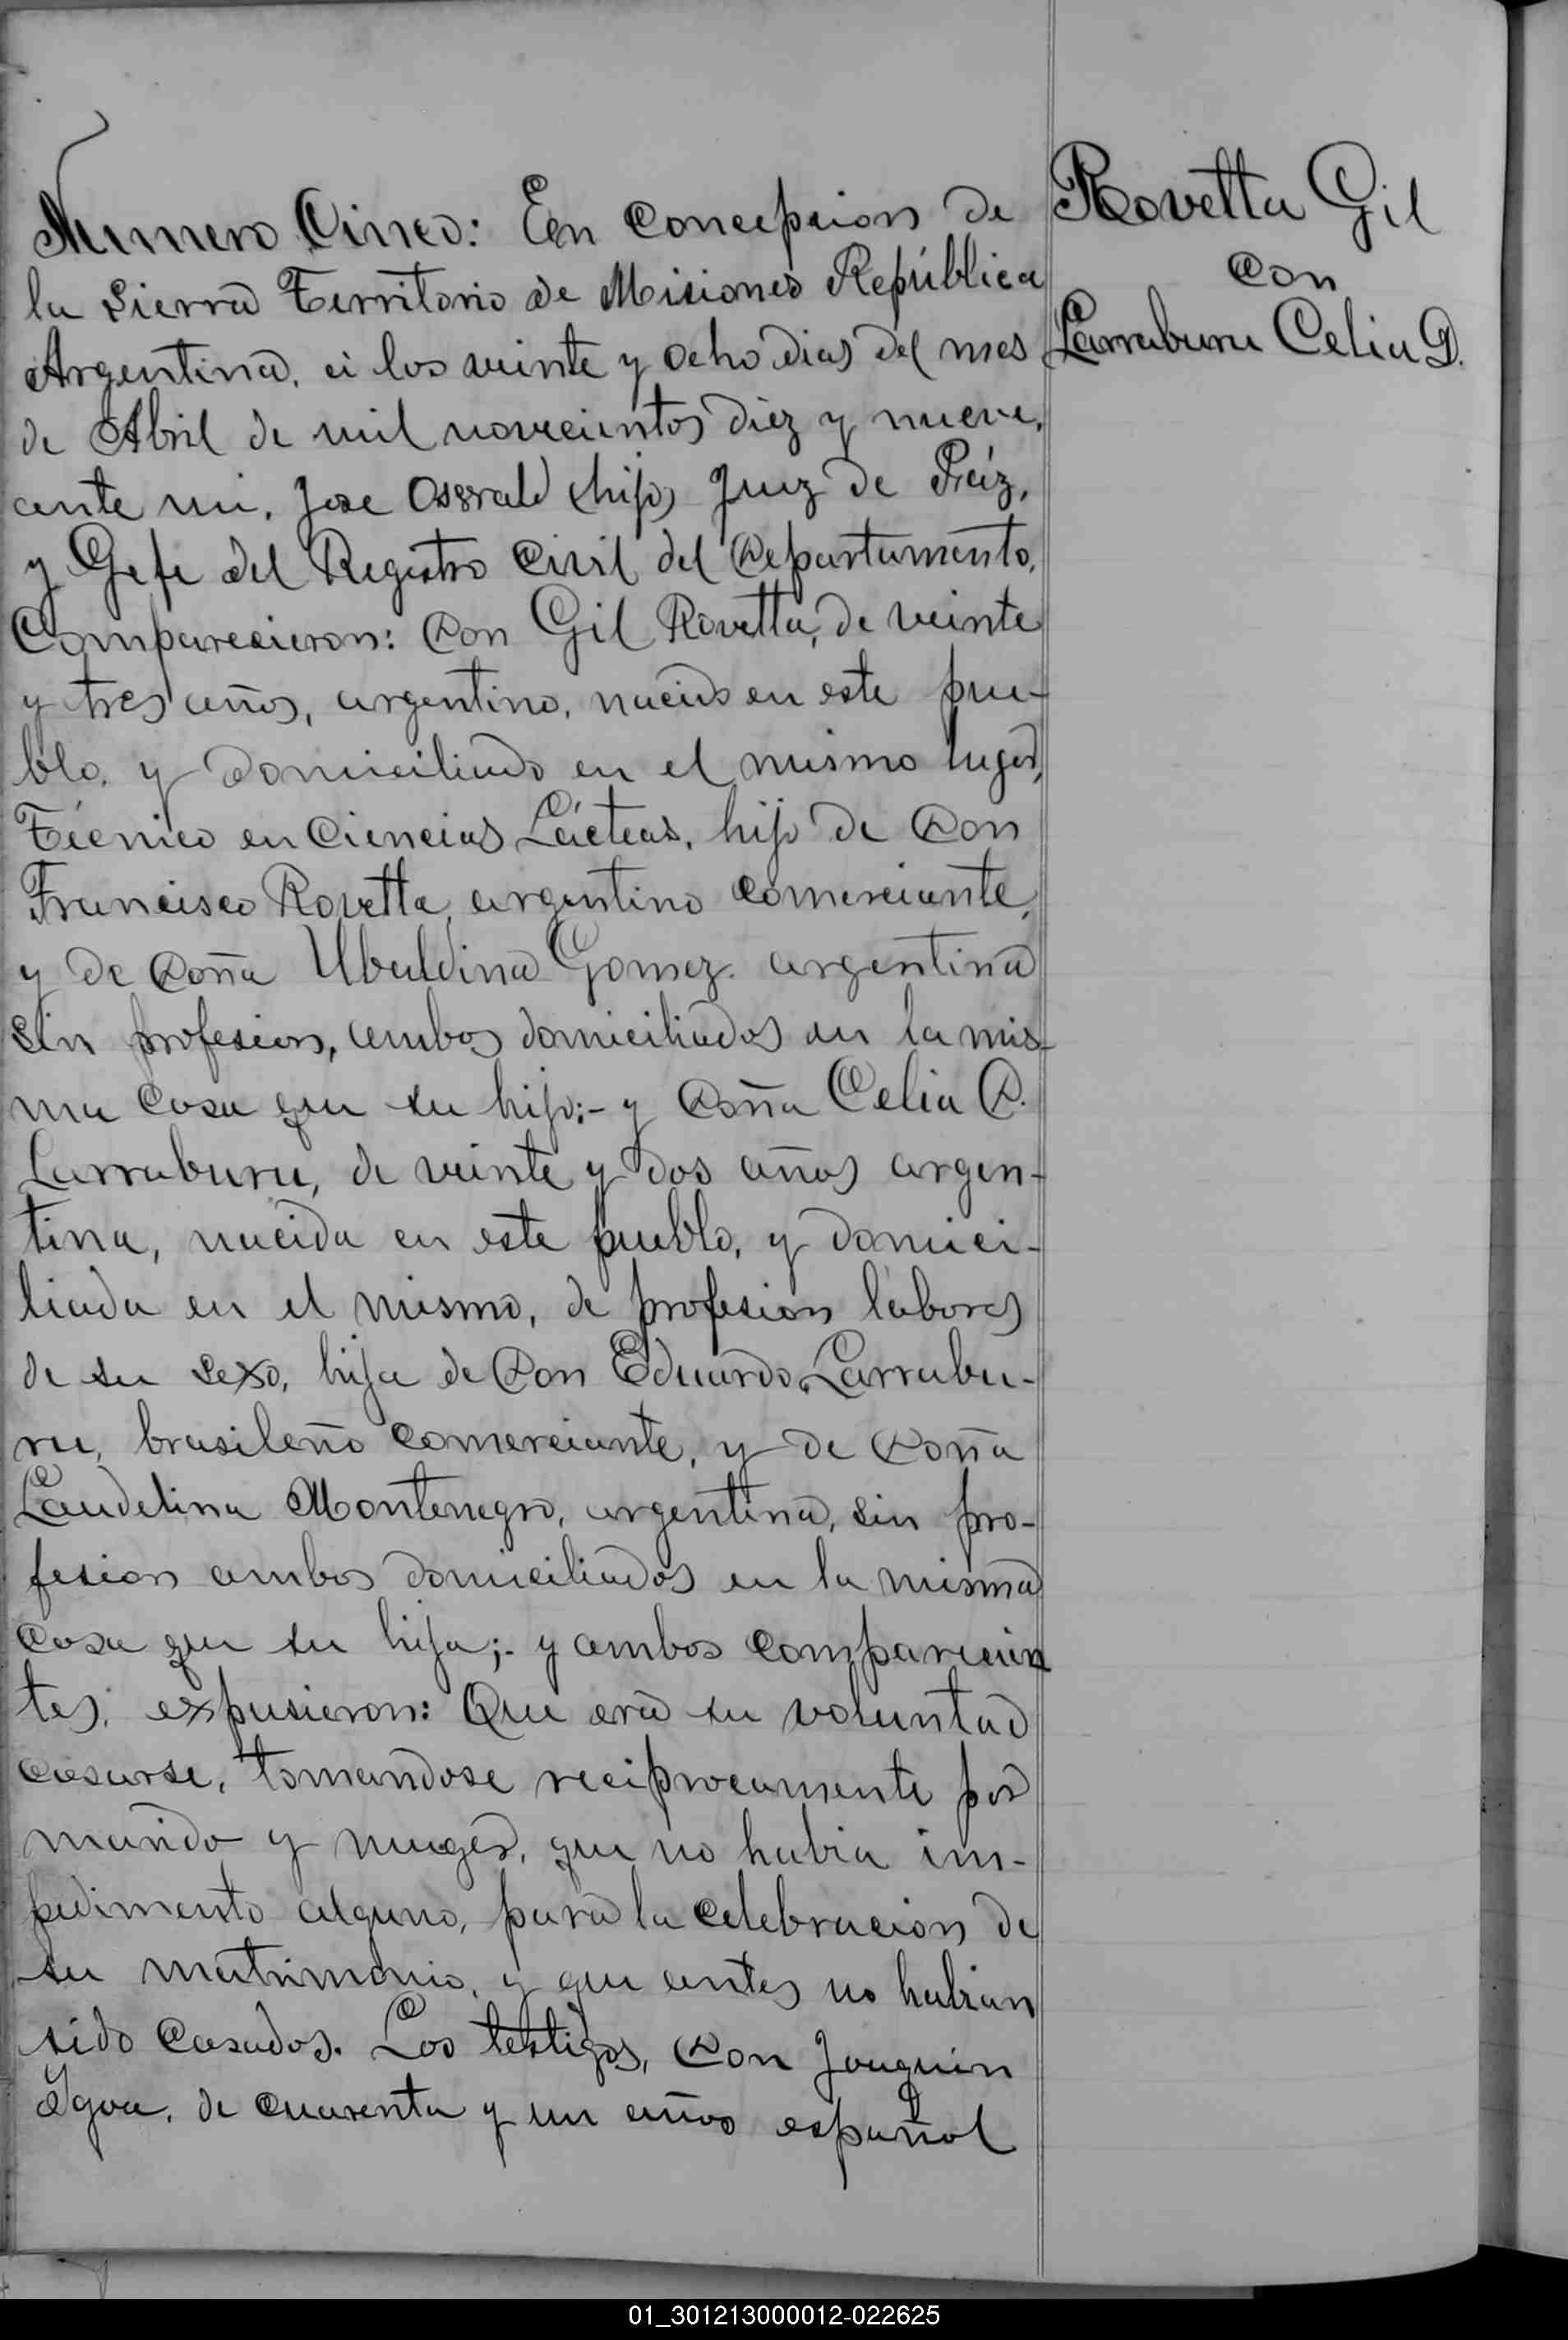 Numero Cinco: En Concepcion de
la Sierra Territorio de Misiones República
Argentina, á los veinte y ocho dias del mes
de Abril de mil novecientos diez y nueve,
ante mi, Jose (hijo) Juez de Páz,
y Gefe del Registro Civil del Departamento,
Comparecieron: Don Gil Rovetta, de veinte
y tres años, argentino, nacido en este pue-
blo, y domiciliado en el mismo lugar,
Técnico en Ciencias Lácteas, hijo de Don
Francisco Rovetta, argentino comerciante,
y de Doña Ubaldina Gomez argentina
sin profesion, ambos domiciliados en la mis-
ma casa que su hijo:- y Doña Celia D.
Larraburu, de veinte y dos años argen-
tina, nacida en este pueblo, y domici-
liada en el mismo, de profesion labores
de su sexo, hija de Don Eduardo Larrabu-
ru, brasileño comerciante, y de Doña
Laudelina Montenegro, argentina, sin pro-
fesion ambos domiciliados en la misma
casa que su hija;- y ambos comparecien
tes, expusieron: Que era su voluntad
casarse, tomandose reciprocamente por
marido y muger, que no habia im-
pedimento alguno, para la celebracion de
su matrimonio, y que antes no habian
sido casados. Los testigos, Don Joaquin
de cuarenta y un años español
Rovetta Gil
con
Larraburu Celia D.
01_301213000012-022625